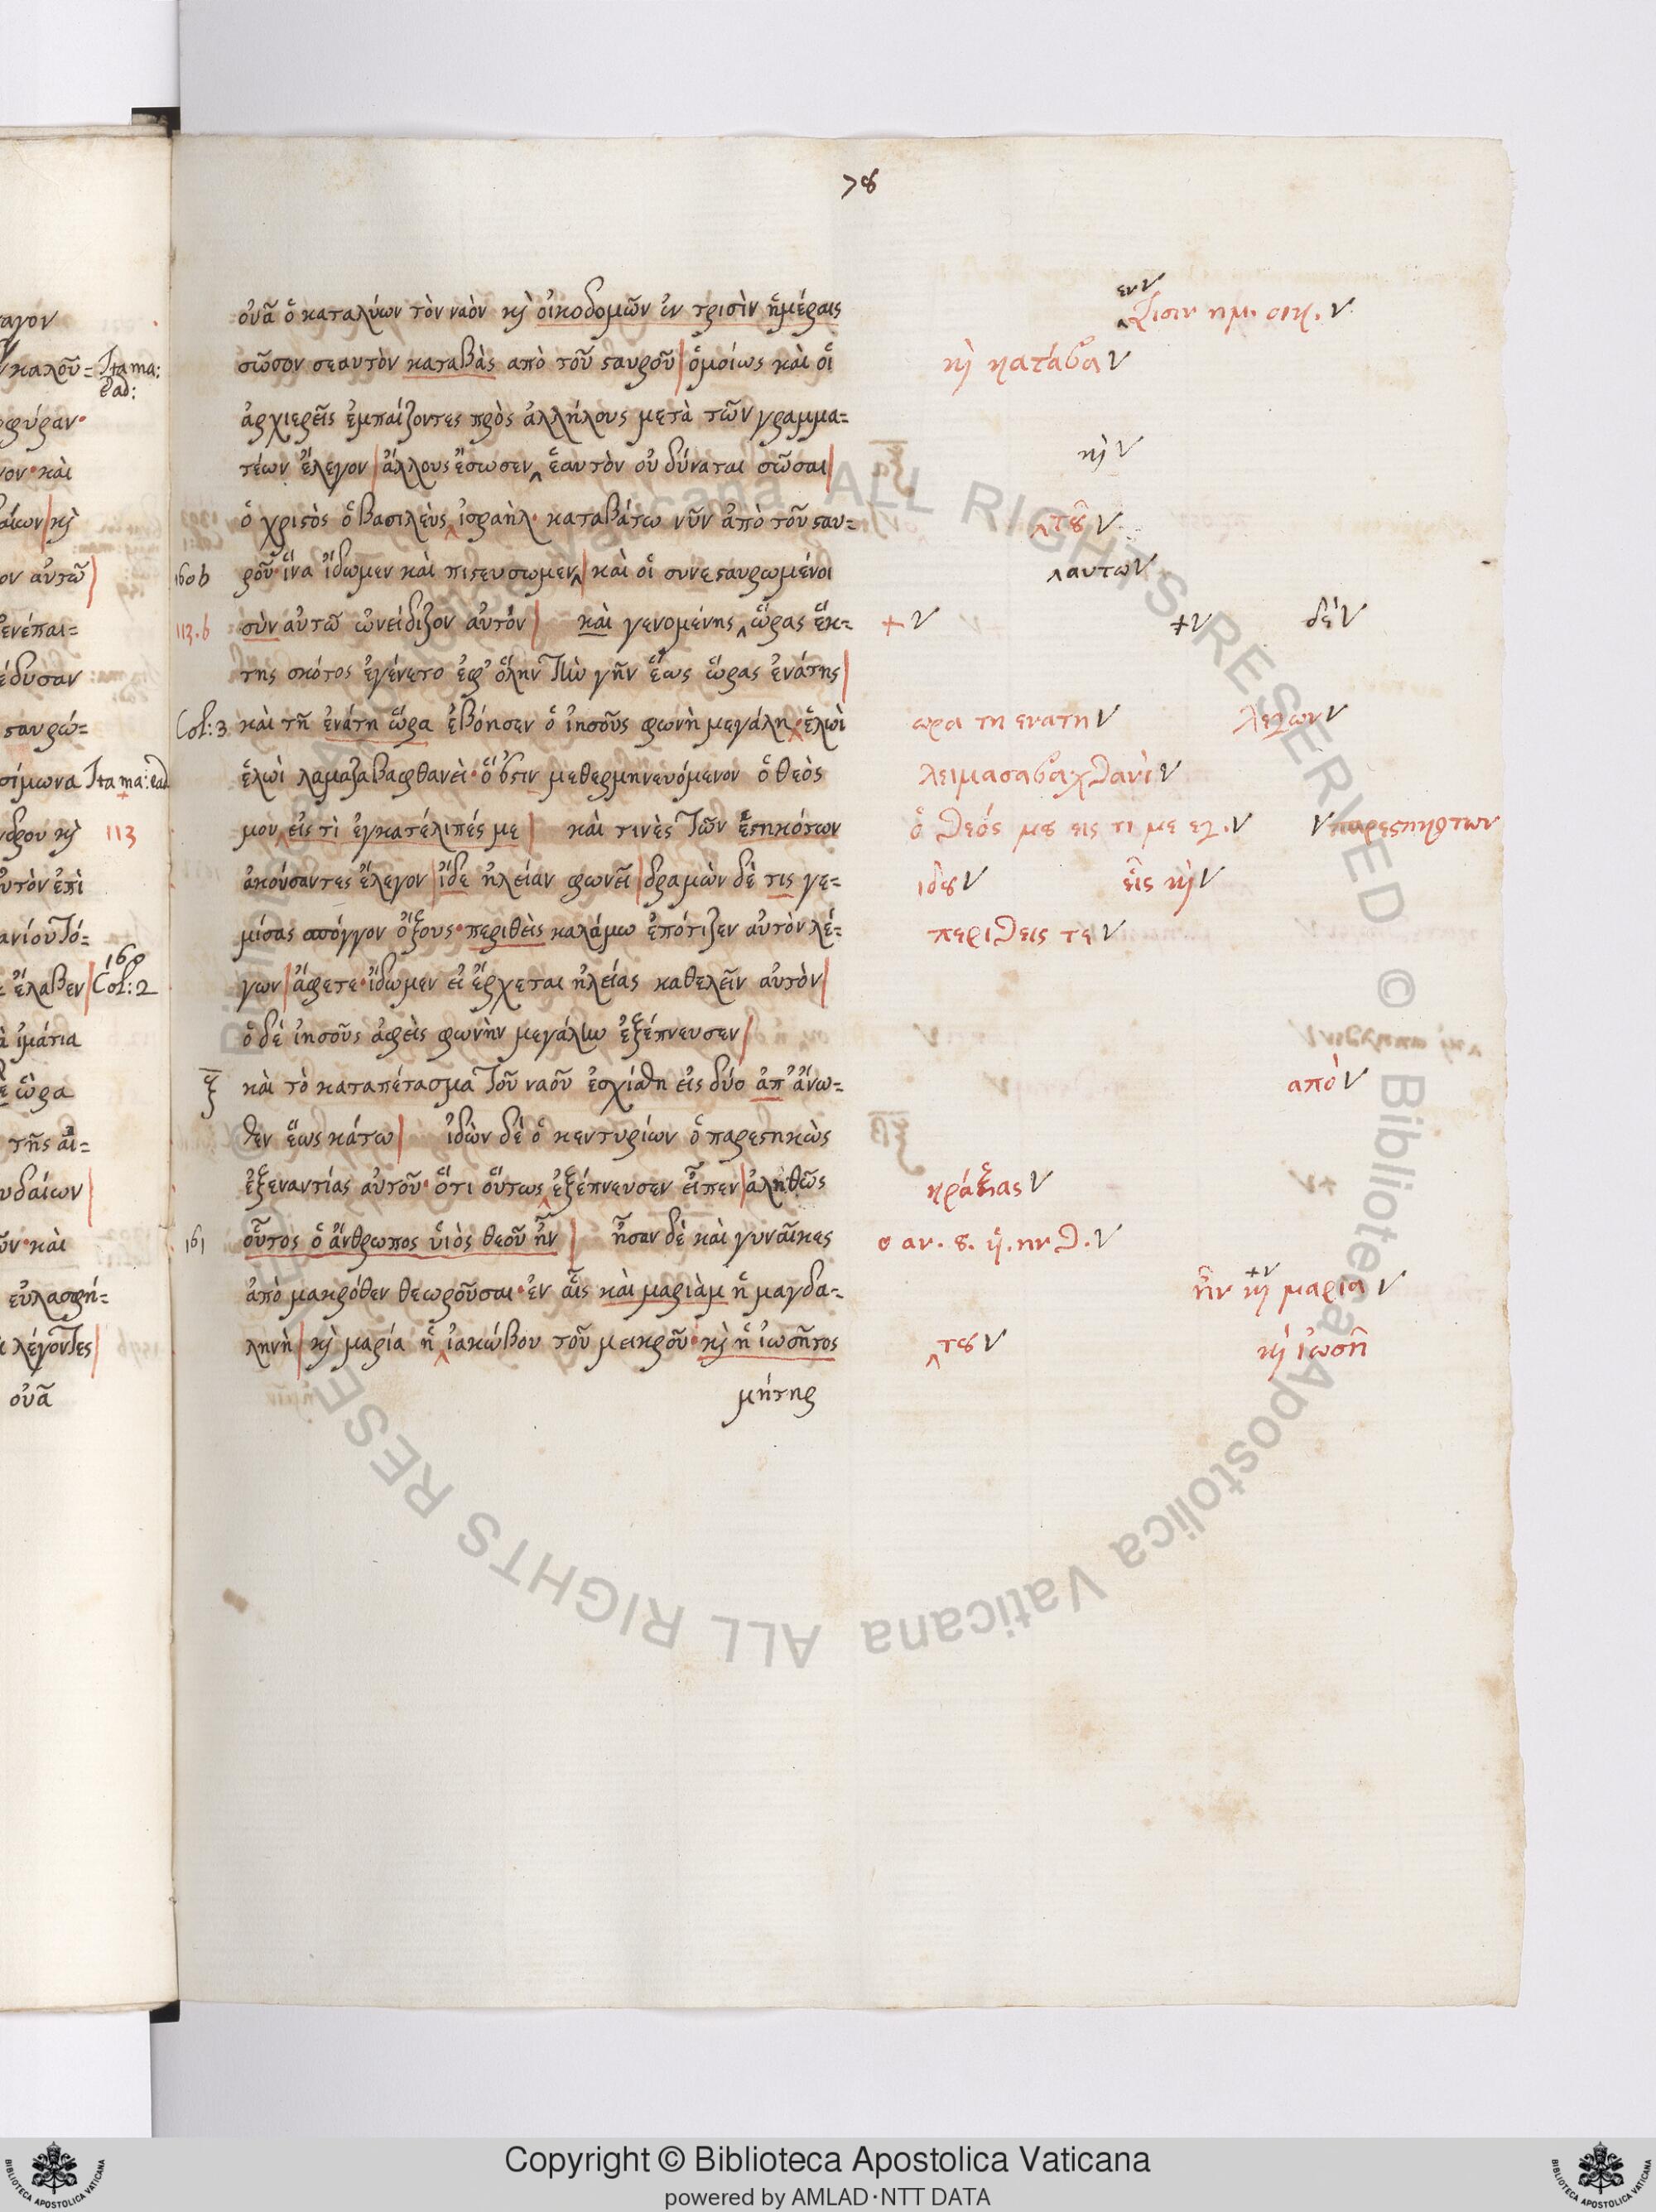 78
ουᾶ ὁ καταλύων τὸν ναὸν κ̀ οἰκοδομῶν ἐν τρισὶν ἡμέραις
σῶσον σεαυτὸν καταβὰς ἀπὸ τοῦ ϛαυροῦ| ὁμοίως καὶ οἱ
ἀρχιερεῖς ἐμπαίζοντες πρὸς ἀλλήλους μετὰ τῶν γραμμα=
τέων ἔλεγον| ἄλλους ἔσωσεν ‸ ἑαυτὸν οὐ δύναται σῶσαι|
ὁ χριϛὸς ὁ βασιλεὺς ‸ ἰσραὴλ· καταβάτω νῦν ἀπὸ τοῦ ϛαυ=
160b ροῦ· ἵνα ἴδωμεν καὶ πιϛευσωμεν ‸ | καὶ οἱ συνεϛαυρωμένοι
113.b σὺν αὐτῶ ὠνείδιζον αὐτόν| καὶ γενομένης ‸ ὥρας ἕκ=
της σκότος ἐγένετο ἐφ' ὅλην τὴν γῆν ἕως ὥρας ἐνάτης|
Col: 3 καὶ τῆ ἐνάτη ὥρα ἐβόησεν ὁ ἰησοῦς φωνὴ μεγάλη ‸ ἐλωὶ
ἐλωὶ λαμαζαβαφθανεὶ· ὅ ἐϛιν μεθερμηνευόμενον ὁ θεὸς
μου ‸ εἰς τὶ ἐγκατέλιπές με| καὶ τινὲς τῶν ἑϛηκότων
ἀκούσαντες ἔλεγον| ἴδε ἠλείαν φωνεῖ| δραμὼν δὲ τις γε=
μίσας σπόγγον ὄξους· περιθεὶς καλάμω ἐπότιζεν αὐτὸν λέ=
γων| ἄφετε· ἴδωμεν εἰ ἔρχεται ἠλείας καθελεῖν αὐτὸν|
ὁ δὲ ἰησοῦς ἀφεὶς φωνὴν μεγάλην ἐξέπνευσεν|
ξ καὶ τὸ καταπέτασμα τοῦ ναοῦ ἐσχίσθη εἰς δύο ἀπ' ἄνω=
θεν ἕως κάτω| ἰδὼν δὲ ὁ κεντυρίων ὁ παρεϛηκὼς
ἐξεναντίας αὐτοῦ· ὅτι οὕτως ‸ ἐξέπνευσεν εἶπεν| ἀληθῶς
161 οὗτος ὁ ἄνθρωπος υἱὸς θεοῦ ἦν| ἦσαν δὲ καὶ γυναῖκες
ἀπὸ μακρόθεν θεωροῦσαι· ἐν αἷς καὶ μαριὰμ ἡ μαγδα=
ληνὴ| κ̀ μαρία ἡ ‸ ἰακώβου τοῦ μεικροῦ· κ̀ ἡ ἰωσῆτος
μήτηρ
εν V
τρισιν ημ. οικ. V
κ̀ κατάβα V
κ̀ V
‸ τȣ͂ V
‸ αυτω V
+ V + V δὲ V
ωρα τη ενατη V λεγων V
λειμασαβαχθανὶ V
ὁ θεός μȣ εις τι με εγ. V V παρεϛηκοτων
ιδȣ V εἷς κ̀ V
περιθεις τε V
απὸ V
κράξας V
ο αν. ȣ. ὑ. ην θ. V
ἦν κ̀ + V μαρια V
‸ τȣ V κ̀ ἰωσῆ
γον
καλοῦ= Ita ma: ead:
φύραν·
ον· καὶ
αίων| κ̀
ον αὐτῶ|
ἐνέπαι=
έδυσαν
ϛαυρώ=
σίμωνα Ita ma: ead
δρου κ̀ 113
ὐτὸν ἐπὶ
ανίου τό=
ἔλαβεν| 160 Col: 2
ἱμάτια
ὥρα
τῆς αἰ=
υδαίων|
ῶν· καὶ
εὐλασφή=
λέγοντες|
οὐᾶ
© Biblioteca Apostolica Vaticana ALL RIGHTS RESERVED
Copyright © Biblioteca Apostolica Vaticana
powered by AMLAD·NTT DATA
BIBLIOTECA APOSTOLICA VATICANA
BIBLIOTECA APOSTOLICA VATICANA